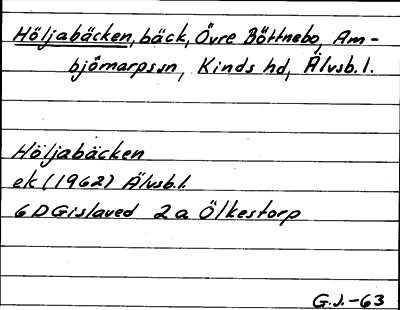 Höljabäcken, bäck, Övre Böttnebo, Am-
björnarpssn, Kinds hd, Älvsb.l.
Höljabäcken
ek (1962) Älvsb.l.
6D Gislaved 2a Ölkestorp
G.J.-63